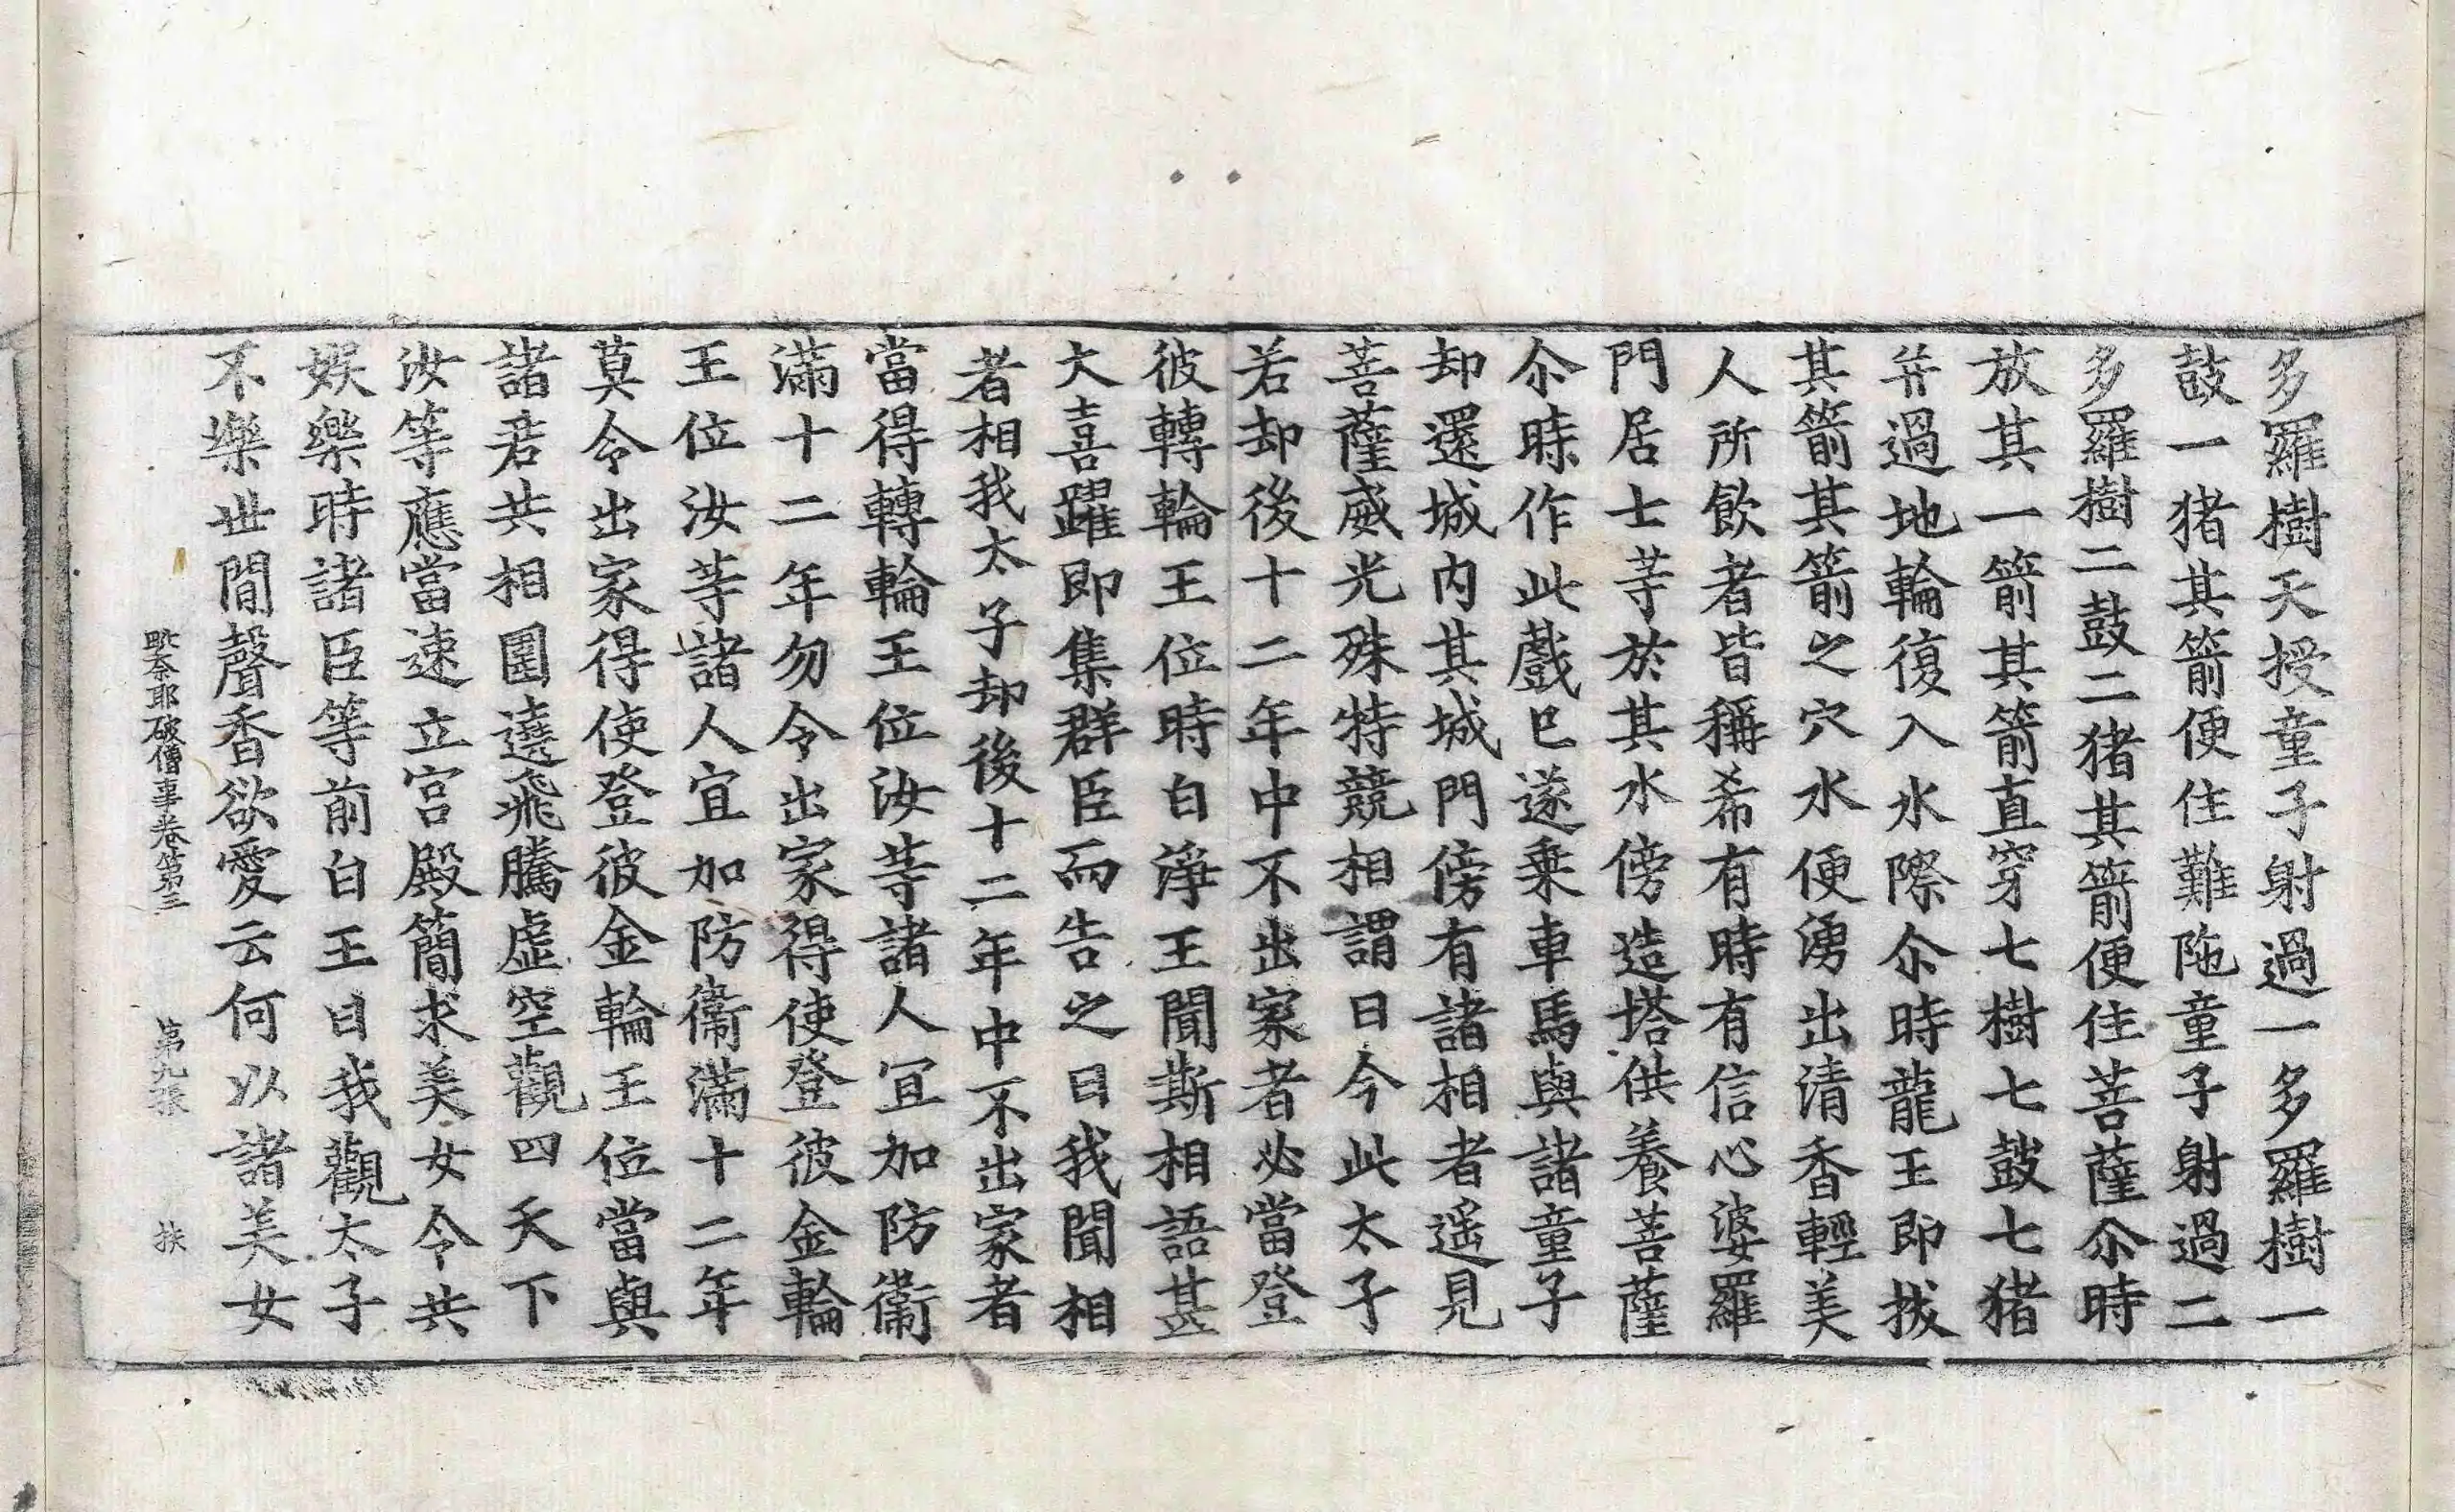 多羅樹天授童子射過一多羅樹一
鼓一猪其箭便住難陁童子射過二
多羅樹二鼓二猪其箭便住菩薩尒時
放其一箭其箭直穿七樹七鼓七猪
并過地輪復入水際尒時龍王即拔
其箭其箭之穴水便湧出清香輕美
人所飲者皆稱希有時有信心婆羅
門居士等於其水傍造塔供養菩薩
尒時作此戲已遂乗車馬與諸童子
却還城内其城門傍有諸相者遥見
菩薩威光殊特競相謂曰今此太子
若却後十二年中不出家者必當登
彼轉輪王位時白淨王聞斯相語甚
大喜躍即集群臣而告之曰我聞相
者相我太子却後十二年中不出家者
當得轉輪王位汝等諸人冝加防衞
滿十二年勿令出家得使登彼金輪
王位汝等諸人宜加防衞滿十二年
莫令出家得使登彼金輪王位當與
諸君共相圍遶飛騰虚空觀四天下
汝等應當速立宫殿簡求美女令共
娯樂時諸臣等前白王曰我觀太子
不樂世間聲香欲愛云何以諸美女
毗奈耶破僧事卷第三 第九張 扶